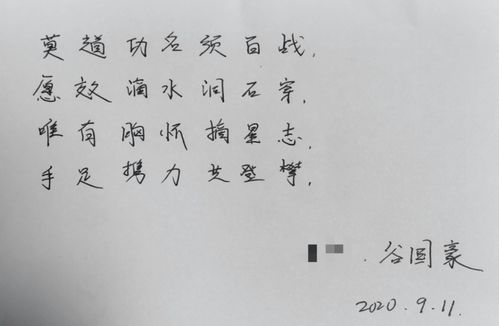 莫道功名须百战，
愿效滴水洞石穿，
唯有胸怀摘星志，
手足携力共登攀。
谷国豪
2020.9.11.